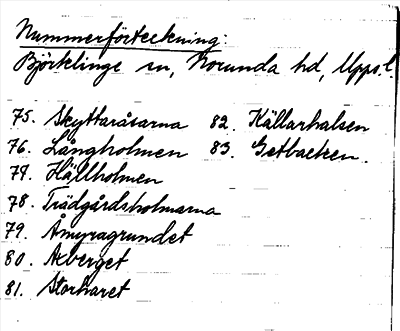 Nummerförteckning:
Björklinge sn, Norunda hd, Upps. l.
75. Skyttaråsarna
76. Långholmen
77. Hällholmen
78. Trädgårdsholmarna
79. Åmyragrundet
80. Axberget
81. Storharet
82. Källarhalsen
83. Getbacken.